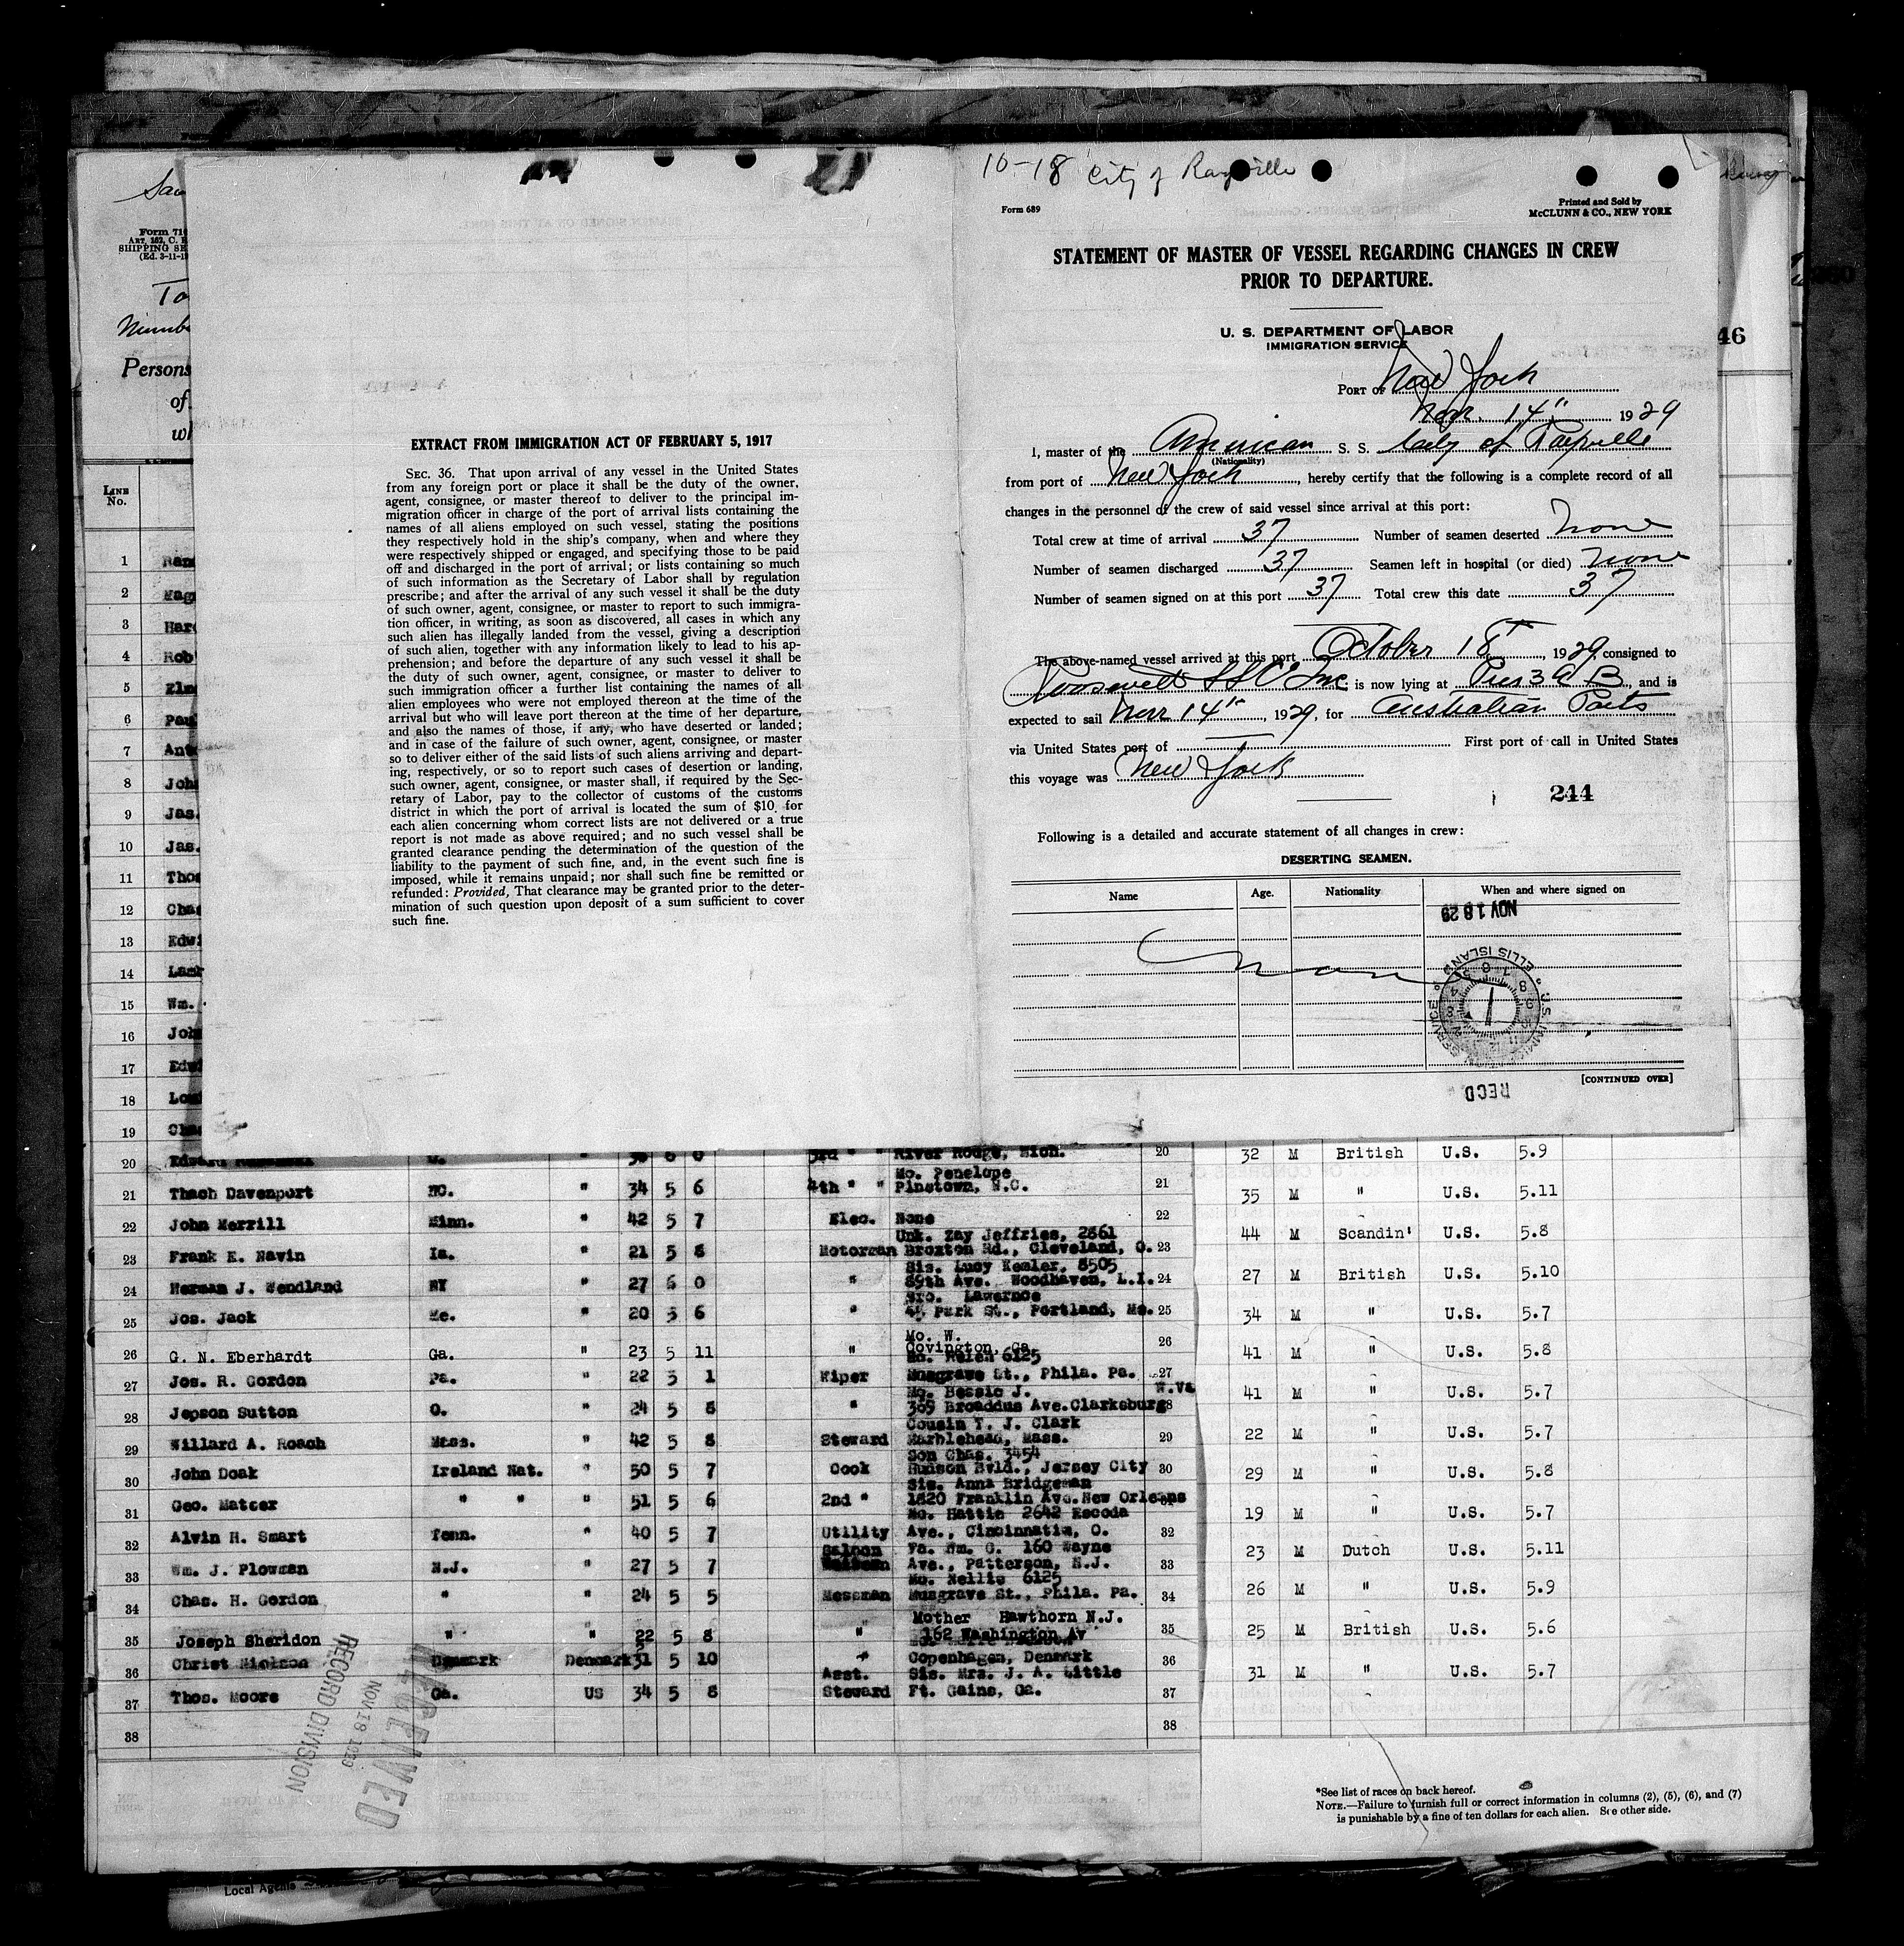 10-18 City of Rayville
Form 689
Printed and Sold by
McCLUNN & CO., NEW YORK
STATEMENT OF MASTER OF VESSEL REGARDING CHANGES IN CREW
PRIOR TO DEPARTURE.
U. S. DEPARTMENT OF LABOR
IMMIGRATION SERVICE
PORT OF New York
Nov. 14" 1929
I, master of the American S. S. City of Rayville
(Nationality)
from port of New York, hereby certify that the following is a complete record of all
changes in the personnel of the crew of said vessel since arrival at this port:
Total crew at time of arrival 37 Number of seamen deserted none
Number of seamen discharged 37 Seamen left in hospital (or died) none
Number of seamen signed on at this port 37 Total crew this date 37
The above-named vessel arrived at this port October 18, 1929, consigned to
Roosevelt SS Co Inc is now lying at Pier 3 A B, and is
expected to sail Nov 14", 1929, for Australian Ports
via United States port of First port of call in United States
this voyage was New York
244
Following is a detailed and accurate statement of all changes in crew:
DESERTING SEAMEN.
Name Age. Nationality When and where signed on
NOV 18 29
U.S. IMMIGRATION SERVICE
ELLIS ISLAND
RECD
[CONTINUED OVER]
EXTRACT FROM IMMIGRATION ACT OF FEBRUARY 5, 1917
SEC. 36. That upon arrival of any vessel in the United States
from any foreign port or place it shall be the duty of the owner,
agent, consignee, or master thereof to deliver to the principal im-
migration officer in charge of the port of arrival lists containing the
names of all aliens employed on such vessel, stating the positions
they respectively hold in the ship's company, when and where they
were respectively shipped or engaged, and specifying those to be paid
off and discharged in the port of arrival; or lists containing so much
of such information as the Secretary of Labor shall by regulation
prescribe; and after the arrival of any such vessel it shall be the duty
of such owner, agent, consignee, or master to report to such immigra-
tion officer, in writing, as soon as discovered, all cases in which any
such alien has illegally landed from the vessel, giving a description
of such alien, together with any information likely to lead to his ap-
prehension; and before the departure of any such vessel it shall be
the duty of such owner, agent, consignee, or master to deliver to
such immigration officer a further list containing the names of all
alien employees who were not employed thereon at the time of the
arrival but who will leave port thereon at the time of her departure,
and also the names of those, if any, who have deserted or landed;
and in case of the failure of such owner, agent, consignee, or master
so to deliver either of the said lists of such aliens arriving and depart-
ing, respectively, or so to report such cases of desertion or landing,
such owner, agent, consignee, or master shall, if required by the Sec-
retary of Labor, pay to the collector of customs of the customs
district in which the port of arrival is located the sum of $10 for
each alien concerning whom correct lists are not delivered or a true
report is not made as above required; and no such vessel shall be
granted clearance pending the determination of the question of the
liability to the payment of such fine, and, in the event such fine is
imposed, while it remains unpaid; nor shall such fine be remitted or
refunded: Provided, That clearance may be granted prior to the deter-
mination of such question upon deposit of a sum sufficient to cover
such fine.
Form 71
ART. 162, C.
SHIPPING SE
(Ed. 3-11-1
To
Numbe
Persons
of
wh
46
LINE
No.
1
2
3
4 Rob
5
6
7
8 Joh
9 Jas.
10 Jas.
11 Thos
12 Chas
13 Edwi
14
15 Wm.
16 Joh
17
18
19
20 3rd " " River Rouge, Mich. 20 32 M British U.S. 5.9
Mo. Penelope
21 Thach Davenport NC. " 34 5 6 4th " " Pinetown, N.C. 21 35 M " U.S. 5.11
22 John Merrill Minn. " 42 5 7 Elec. None 22 44 M Scandin' U.S. 5.8
Unk. Zay Jeffries, 2861
23 Frank E. Navin Ia. " 21 5 8 Motorman Broxton Rd., Cleveland, O. 23 27 M British U.S. 5.10
Sis. Lucy Kesler, 8505
24 Herman J. Wendland NY " 27 6 0 " 89th Ave. Woodhaven, L.I. 24 34 M " U.S. 5.7
Bro. Lawernce
25 Jos. Jack Me. " 20 5 6 " 45 Park St., Portland, Me. 25 41 M " U.S. 5.8
Mo. W.
26 G. N. Eberhardt Ga. " 23 5 11 " Covington, Ga 26 41 M " U.S. 5.7
Mo. Helen 6125
27 Jos. R. Gordon Pa. " 22 5 1 Wiper Musgrave St., Phila. Pa. 27 22 M " U.S. 5.7
Mo. Bessie J. W.Va
28 Jepson Sutton O. " 24 5 8 " 369 Broaddus Ave. Clarksburg 28 29 M " U.S. 5.8
Cousin T. J. Clark
29 Willard A. Roach Mass. " 42 5 8 Steward Marblehead, Mass. 29 19 M " U.S. 5.7
Son Chas. 3454
30 John Doak Ireland Nat. " 50 5 7 Cook Hudson Bvld., Jersey City 30 23 M Dutch U.S. 5.11
Sis. Anna Bridgeman
31 Geo. Matser " " " 51 5 6 2nd " 1820 Franklin Ave. New Orleans 26 M " U.S. 5.9
Mo. Hattie 2642 Escoda
32 Alvin H. Smart Tenn. " 40 5 7 Utility Ave., Cincinnatia, O. 32 25 M British U.S. 5.6
Saloon Fa. Wm. G. 160 Wayne
33 Wm. J. Plowman N.J. " 27 5 7 Ave., Patterson, N.J. 33 31 M " U.S. 5.7
Mo. Nellie 6125
34 Chas. H. Gordon " " 24 5 5 Messman Musgrave St., Phila. Pa. 34
Mother Hawthorn N.J.
35 Joseph Sheridon " " 22 5 8 " 162 Washington Av 35
36 Christ Nielson Denmark Denmark 31 5 10 " Copenhagen, Denmark 36
Asst. Sis. Mrs. J. A. Little
37 Thos. Moore Ga. US 34 5 8 Steward Ft. Gains, Ga. 37
38 38
RECEIVED
NOV 18 1929
RECORD DIVISION
*See list of races on back hereof.
NOTE.—Failure to furnish full or correct information in columns (2), (5), (6), and (7)
is punishable by a fine of ten dollars for each alien. See other side.
Local Agents